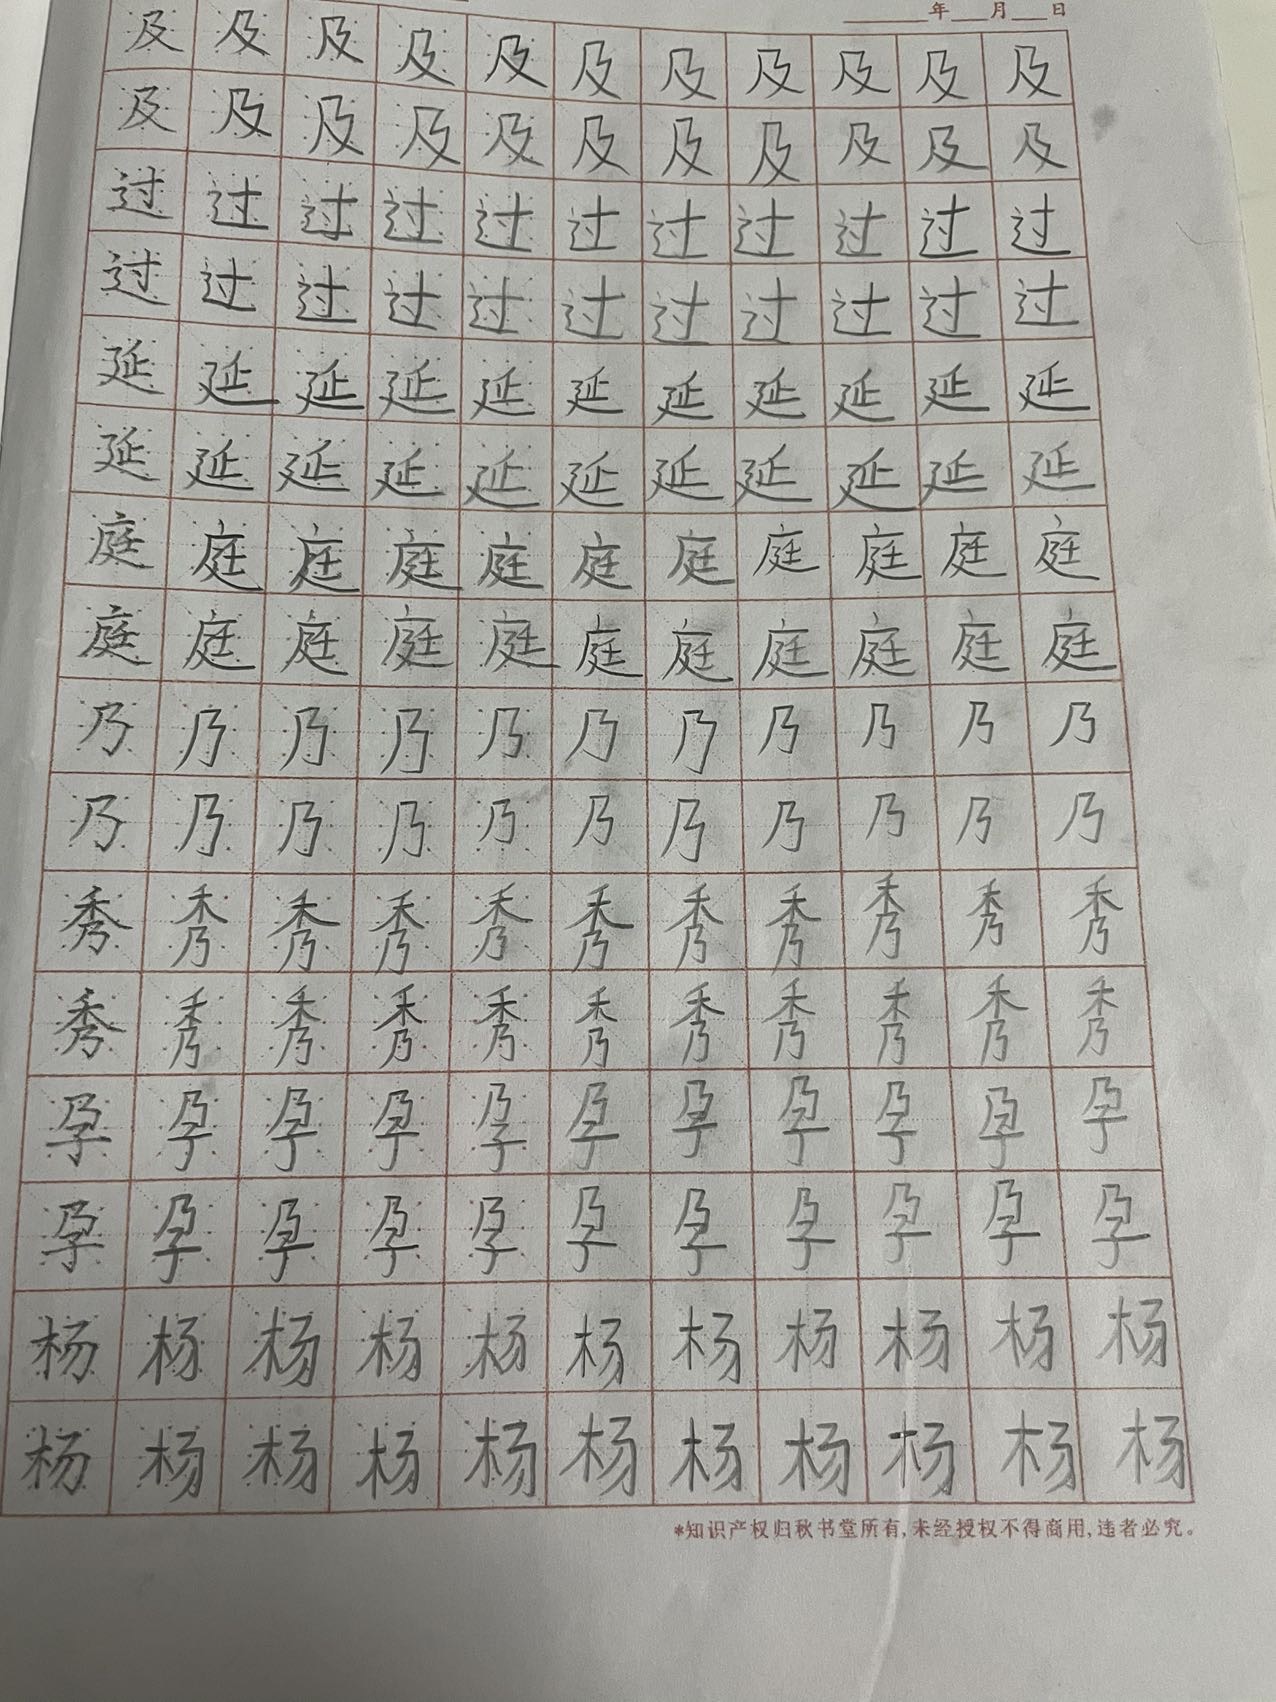 年 月 日
及 及 及 及 及 及 及 及 及 及 及
及 及 及 及 及 及 及 及 及 及 及
过 过 过 过 过 过 过 过 过 过 过
过 过 过 过 过 过 过 过 过 过 过
延 延 延 延 延 延 延 延 延 延 延
延 延 延 延 延 延 延 延 延 延 延
庭 庭 庭 庭 庭 庭 庭 庭 庭 庭 庭
庭 庭 庭 庭 庭 庭 庭 庭 庭 庭 庭
乃 乃 乃 乃 乃 乃 乃 乃 乃 乃 乃
乃 乃 乃 乃 乃 乃 乃 乃 乃 乃 乃
秀 秀 秀 秀 秀 秀 秀 秀 秀 秀 秀
秀 秀 秀 秀 秀 秀 秀 秀 秀 秀 秀
孕 孕 孕 孕 孕 孕 孕 孕 孕 孕 孕
孕 孕 孕 孕 孕 孕 孕 孕 孕 孕 孕
杨 杨 杨 杨 杨 杨 杨 杨 杨 杨 杨
杨 杨 杨 杨 杨 杨 杨 杨 杨 杨 杨
*知识产权归秋书堂所有,未经授权不得商用,违者必究。